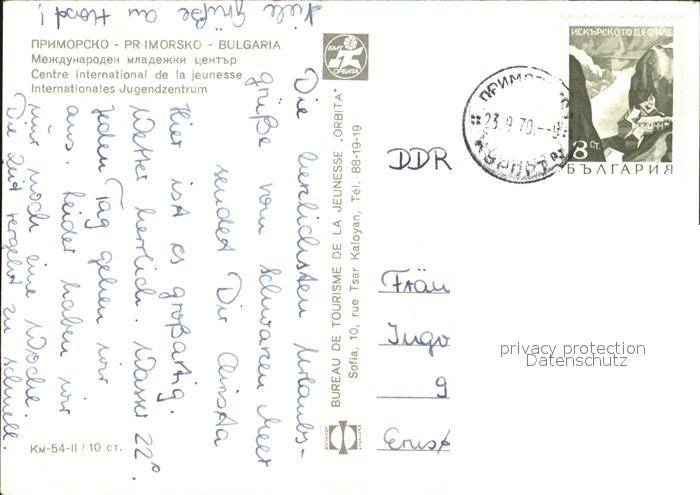 Viele Grüße an Horst!
ПРИМОРСКО - PRIMORSKO - BULGARIA
Международен младежки център
Centre international de la jeunesse
Internationales Jugendzentrum
Die herzlichsten Urlaubs-
grüße vom Schwarzen Meer
sendet Dir Christa
Hier ist es großartig.
Wetter herrlich. Wasser 22°.
Jeden Tag gehen wir
aus. Leider haben wir
nur noch eine Woche.
Die Zeit vergeht zu schnell.
Км-54-II / 10 ст.
БМТ
ОРБИТА
BUREAU DE TOURISME DE LA JEUNESSE „ORBITA"
Sofia, 10, rue Tsar Kaloyan, Tél. 88-19-19
ИСКЪРСКОТО ДЕФИЛЕ
8 Ст.
БЪЛГАРИЯ
23.9.70
DDR
Fräu
Ingo
9
privacy protection
Datenschutz